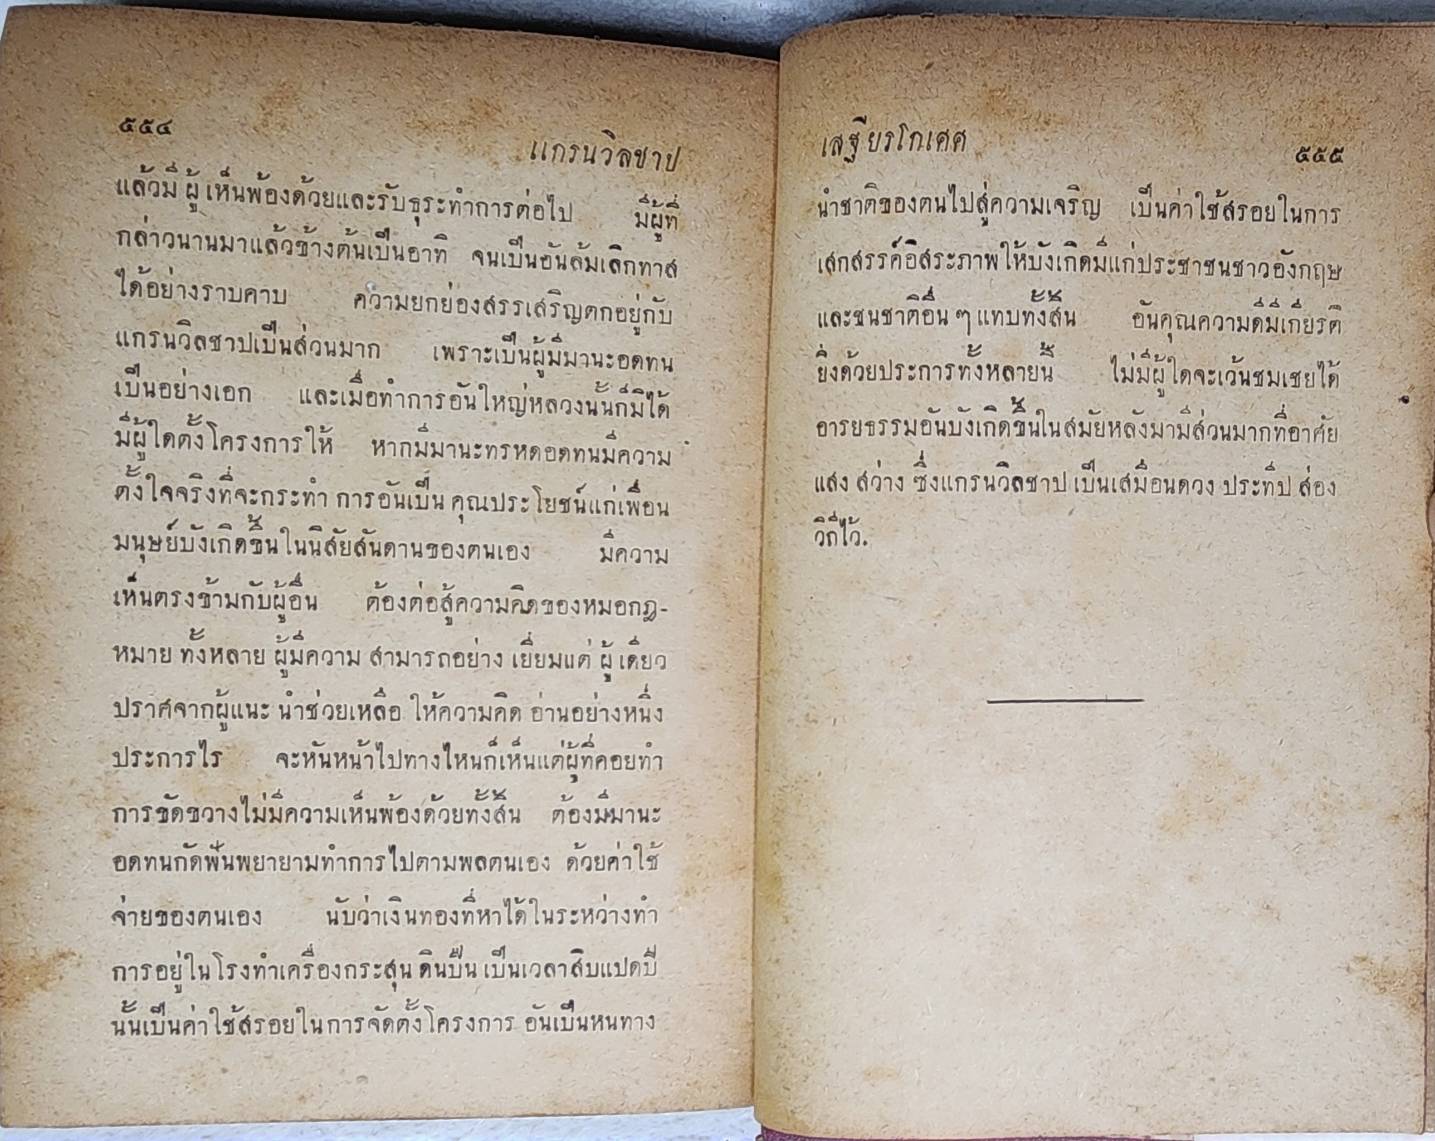 ๕๕๔
แกรนวิลชาป
แล้วมี ผู้ เห็นพ้องด้วยและรับธุระทำการต่อไป มีผู้ที่
กล่าวนานมาแล้วข้างต้นเป็นอาทิ จนเป็นอันล้มเลิกทาส
ได้อย่างราบคาบ ความยกย่องสรรเสริญตกอยู่กับ
แกรนวิลชาปเป็นส่วนมาก เพราะเป็นผู้มีมานะอดทน
เป็นอย่างเอก และเมื่อทำการอันใหญ่หลวงนั้นก็มิได้
มีผู้ใดตั้งโครงการให้ หากมีมานะทรหดอดทนมีความ
ตั้งใจจริงที่จะกระทำ การอันเป็น คุณประโยชน์แก่เพื่อน
มนุษย์บังเกิดขึ้นในนิสัยสันดานของตนเอง มีความ
เห็นตรงข้ามกับผู้อื่น ต้องต่อสู้ความคิดของหมอกฎ-
หมาย ทั้งหลาย ผู้มีความ สามารถอย่าง เยี่ยมแต่ ผู้ เดียว
ปราศจากผู้แนะ นำช่วยเหลือ ให้ความคิด อ่านอย่างหนึ่ง
ประการไร จะหันหน้าไปทางไหนก็เห็นแต่ผู้ที่คอยทำ
การขัดขวางไม่มีความเห็นพ้องด้วยทั้งสิ้น ต้องมีมานะ
อดทนกัดฟันพยายามทำการไปตามพลตนเอง ด้วยค่าใช้
จ่ายของตนเอง นับว่าเงินทองที่หาได้ในระหว่างทำ
การอยู่ในโรงทำเครื่องกระสุน ดินปืน เป็นเวลาสิบแปดปี
นั้นเป็นค่าใช้สรอยในการจัดตั้งโครงการ อันเป็นหนทาง
เสฐียรโกเศศ
๕๕๕
นำชาติของตนไปสู่ความเจริญ เป็นค่าใช้สรอยในการ
เสกสรรค์อิสระภาพให้บังเกิดมีแก่ประชาชนชาวอังกฤษ
และชนชาติอื่น ๆ แทบทั้งสิ้น อันคุณความดีมีเกียรติ
ยิ่งด้วยประการทั้งหลายนี้ ไม่มีผู้ใดจะเว้นชมเชยได้
อารยธรรมอันบังเกิดขึ้นในสมัยหลังมามีส่วนมากที่อาศัย
แสง สว่าง ซึ่งแกรนวิลชาป เป็นเสมือนดวง ประทีป ส่อง
วิถีไว้.